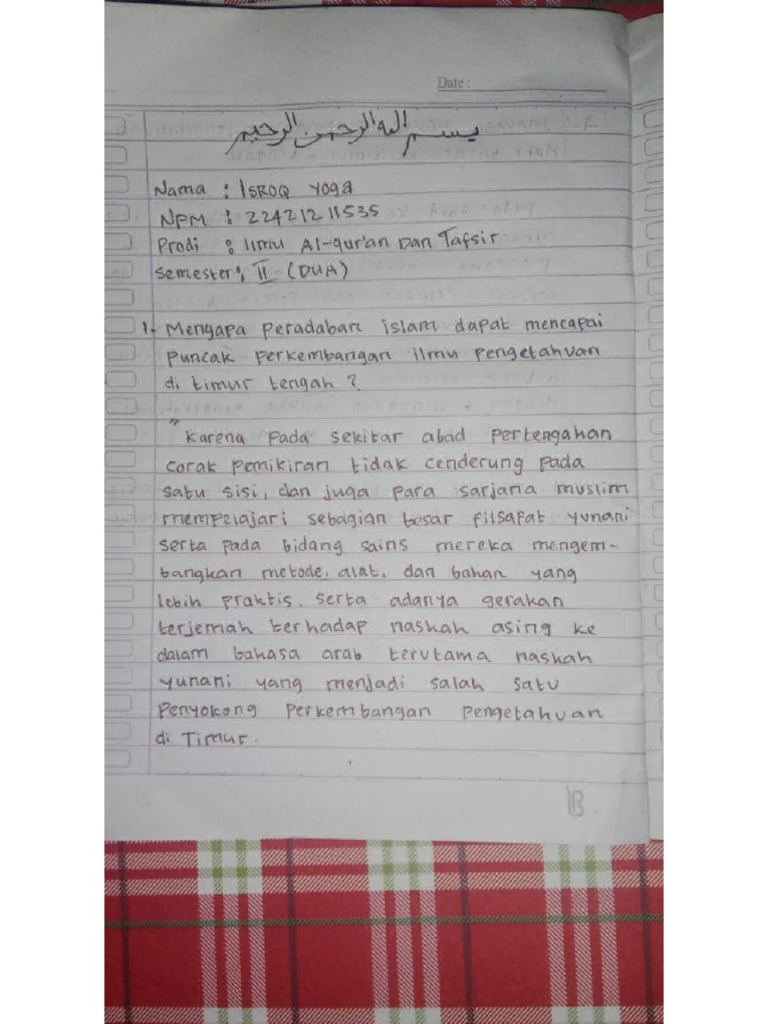 Date :
بسم الله الرحمن الرحيم
Nama : Isroq Yoga
NPM : 22421211535
Prodi : Ilmu Al-qur'an Dan Tafsir
Semester : II (DUA)
1. Mengapa peradaban islam dapat mencapai
puncak perkembangan ilmu pengetahuan
di timur tengah ?
" Karena pada sekitar abad pertengahan
corak pemikiran tidak cenderung pada
satu sisi, dan juga para sarjana muslim
mempelajari sebagian besar filsafat yunani
serta pada bidang sains mereka mengem-
bangkan metode, alat, dan bahan yang
lebih praktis, serta adanya gerakan
terjemah terhadap naskah asing ke
dalam bahasa arab terutama naskah
yunani yang menjadi salah satu
penyokong perkembangan pengetahuan
di Timur.
B